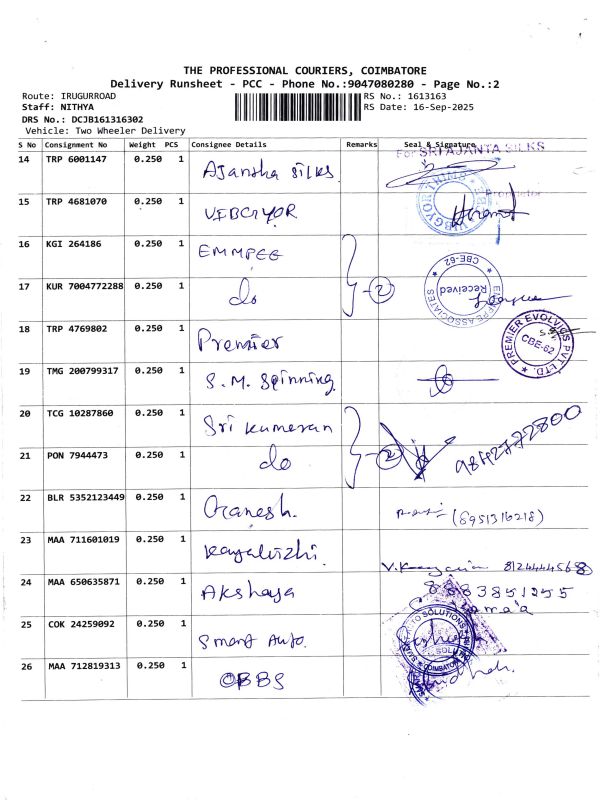 THE PROFESSIONAL COURIERS, COIMBATORE
Delivery Runsheet - PCC - Phone No.:9047080280 - Page No.:2
Route: IRUGURROAD RS No.: 1613163
Staff: NITHYA RS Date: 16-Sep-2025
DRS No.: DCJB161316302
Vehicle: Two Wheeler Delivery
S No Consignment No Weight PCS Consignee Details Remarks Seal & Signature
For SRI AJANTA SILKS
14 TRP 6001147 0.250 1 Ajantha silks
Proprietor
15 TRP 4681070 0.250 1 VIBGYOR
VIBGYOR TRIMS
16 KGI 264186 0.250 1 EMMPEE
17 KUR 7004772288 0.250 1 do 2
EMMPEE ASSOCIATES CBE-62 Received
18 TRP 4769802 0.250 1 Premier
PREMIER EVOLVICS PVT LTD. CBE-62
19 TMG 200799317 0.250 1 S.M. Spinning.
20 TCG 10287860 0.250 1 Sri Kumaran
21 PON 7944473 0.250 1 do 2 9842772800
22 BLR 5352123449 0.250 1 Ganesh. (8951316218)
23 MAA 711601019 0.250 1 Kayalvizhi. 8124444568
24 MAA 650635871 0.250 1 Akshaya 8883851255
25 COK 24259092 0.250 1 Smart Auto.
SMART AUTO SOLUTIONS COIMBATORE
26 MAA 712819313 0.250 1 OBBS